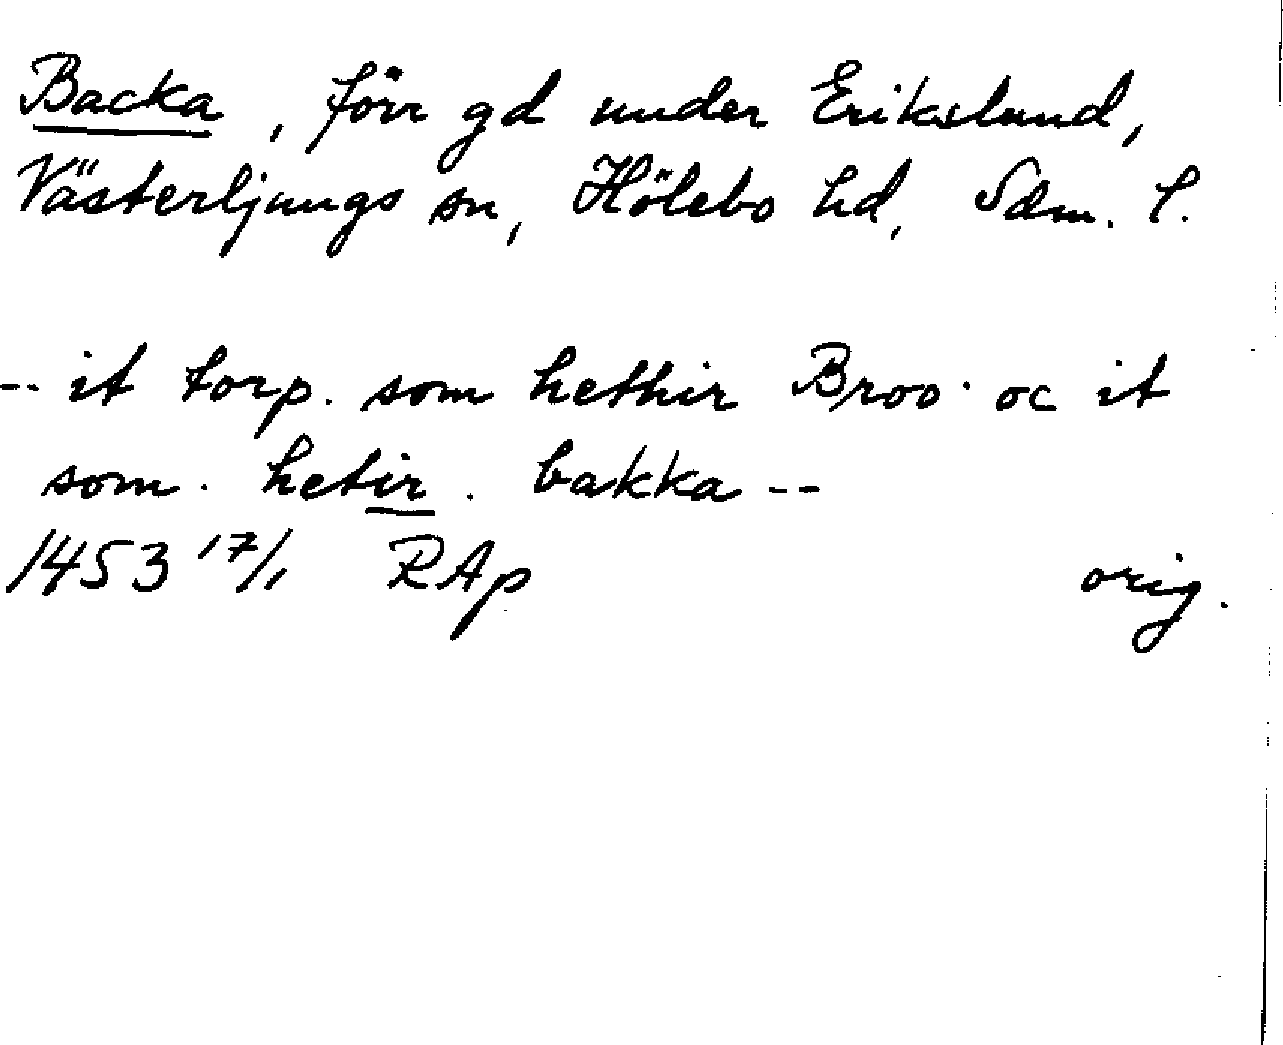 Backa, förr gd under Erikslund,
Västerljungs sn, Hölebo hd, Sdm. l.
-- it torp. som hethir Broo · oc it
som. hetir. bakka --
1453 17/1 RAp orig.